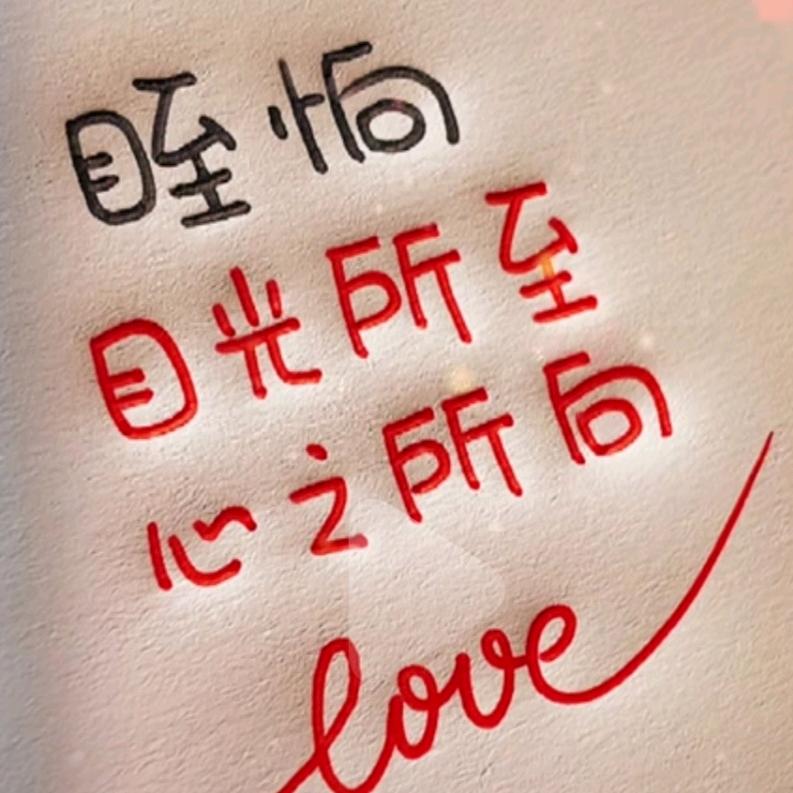 眰恦
目光所至
心之所向
love